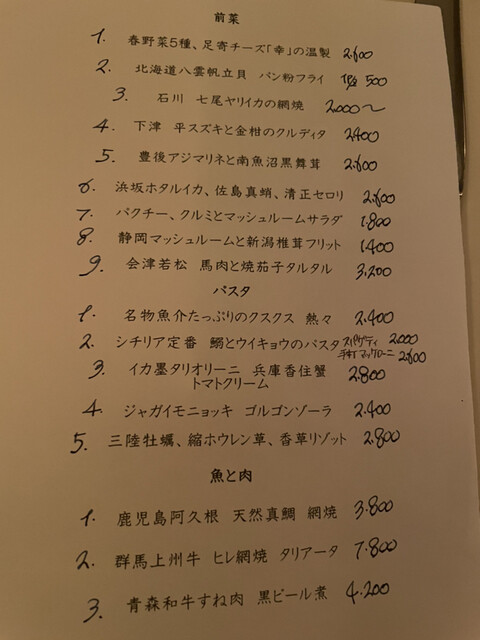 前菜
1. 春野菜5種、足寄チーズ「幸」の温製 2.600
2. 北海道八雲帆立貝 パン粉フライ 1P 500
3. 石川 七尾ヤリイカの網焼 2.000〜
4. 下津 平スズキと金柑のクルディタ 2.400
5. 豊後アジマリネと南魚沼黒舞茸 2.600
6. 浜坂ホタルイカ、佐島真蛸、清正セロリ 2.600
7. パクチー、クルミとマッシュルームサラダ 1.800
8. 静岡マッシュルームと新潟椎茸フリット 1.400
9. 会津若松 馬肉と焼茄子タルタル 3.200
パスタ
1. 名物魚介たっぷりのクスクス 熱々 2.400
2. シチリア定番 鰯とウイキョウのパスタ スパゲティ 2.000
手打マッケローニ 2.600
3. イカ墨タリオリーニ 兵庫香住蟹 2.800
トマトクリーム
4. ジャガイモニョッキ ゴルゴンゾーラ 2.400
5. 三陸牡蠣、縮ホウレン草、香草リゾット 2.800
魚と肉
1. 鹿児島阿久根 天然真鯛 網焼 3.800
2. 群馬上州牛 ヒレ網焼 タリアータ 7.800
3. 青森和牛すね肉 黒ビール煮 4.200